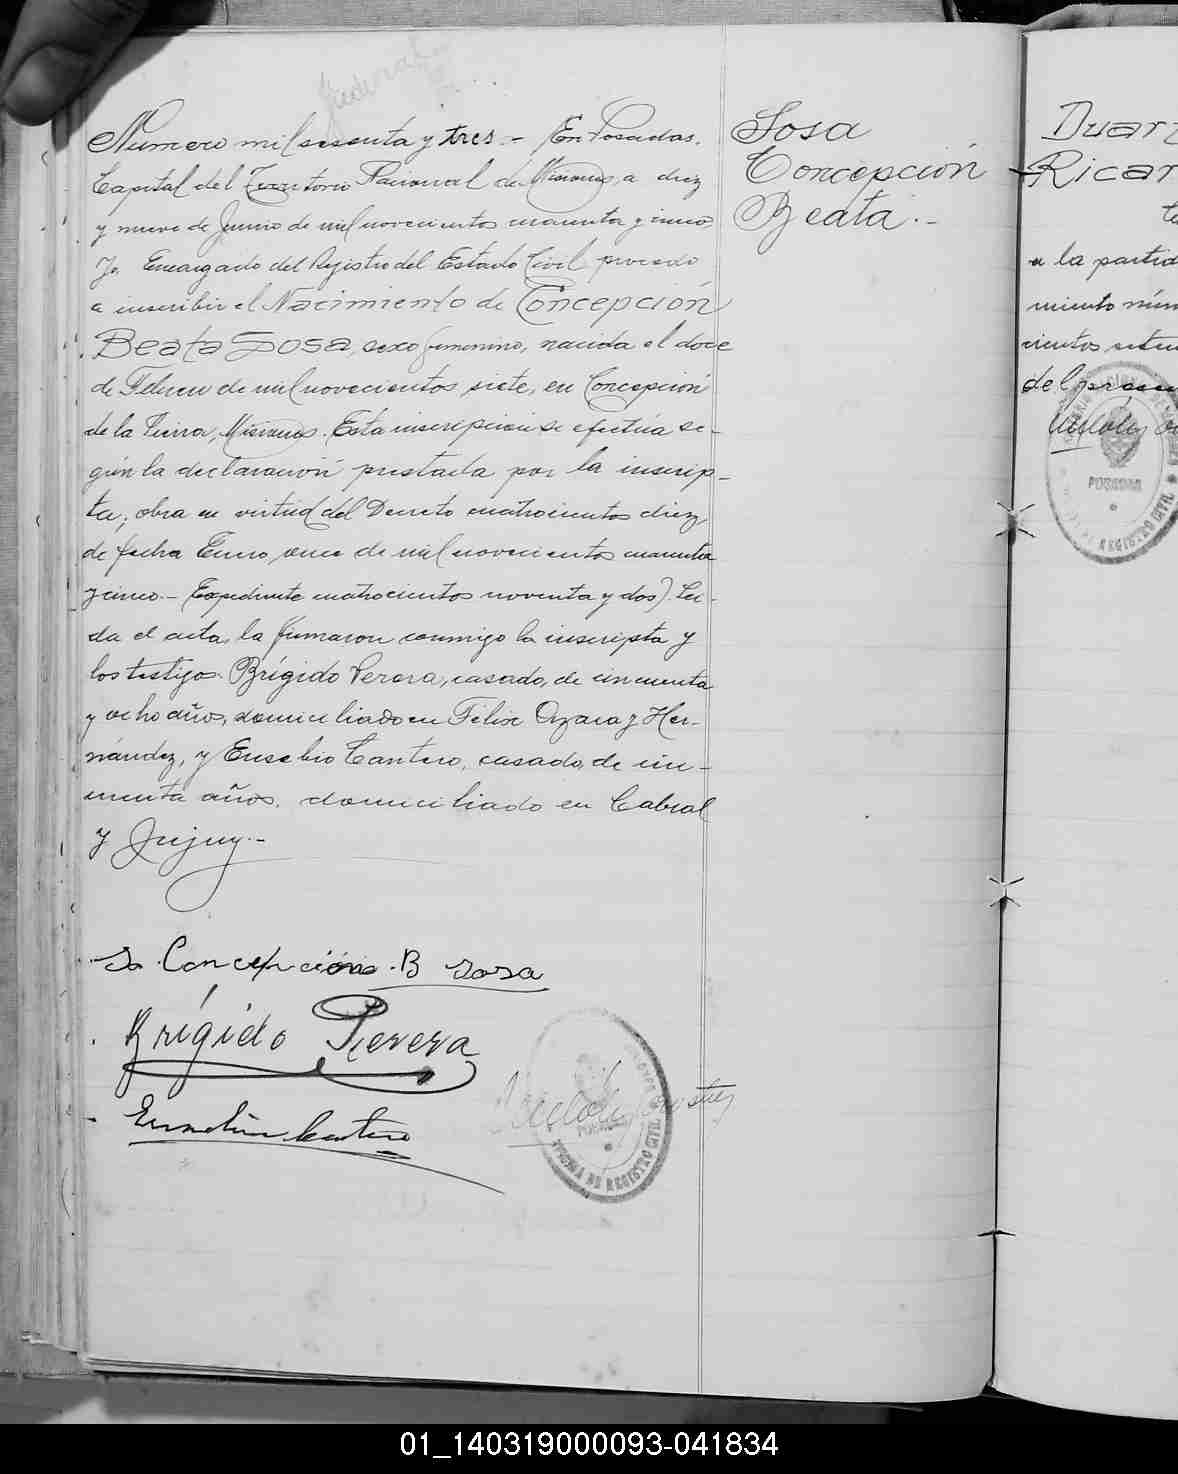 Federal
Numero mil sesenta y tres.- En Posadas,
Capital del Territorio Nacional de Misiones, a diez
y nueve de Junio de mil novecientos cuarenta y cinco,
Yo Encargado del Registro del Estado Civil procedo
a inscribir el Nacimiento de Concepción
Beata Sosa, sexo femenino, nacida el doce
de Febrero de mil novecientos siete, en Concepción
de la Sierra, Misiones. Esta inscripcion se efectúa se-
gún la declaración prestada por la inscrip-
ta, obra en virtud del Decreto cuatrocientos diez
de fecha Enero once de mil novecientos cuarenta
y cinco.- (Expediente cuatrocientos noventa y dos). Leí-
da el acta, la firmaron conmigo la inscripta y
los testigos. Brígido Perera, casado, de cincuenta
y ocho años, domiciliado en Félix Azara y Her-
nández, y Eusebio Cantero, casado, de cin-
cuenta años, domiciliado en Cabral
y Jujuy.-
Concepción B Sosa
Brígido Perera
Eusebio Cantero
POSADAS
OFICINA DE REGISTRO CIVIL
Sosa
Concepción
Beata.-
Duar
Ricar
a la partid
miento núm
cientos seten
del
POSADAS
REGISTRO CIVIL
01_140319000093-041834